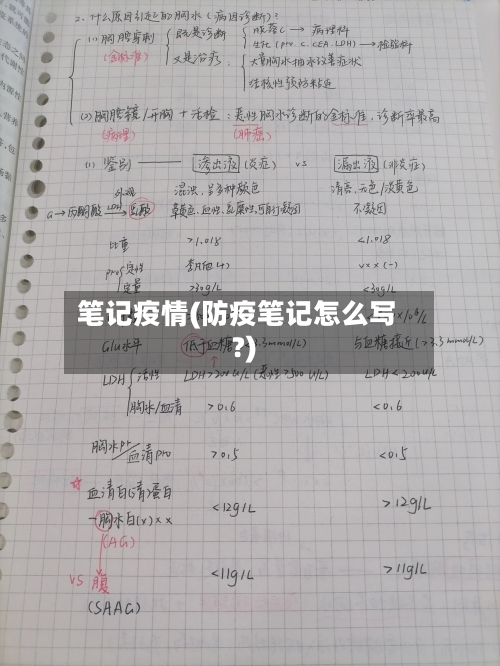 2、什么原因引起的胸水(病因诊断)?
(1)胸腔穿刺 既是诊断 脱落C → 病理科
生化(pro.c.CEA.LDH) → 检验科
(金标准) 又是治疗 大量胸水抽水改善症状
结核性预防粘连
(2)胸腔镜/开胸 + 活检:恶性胸水诊断的金标准,诊断率最高
(病理) (肺癌)
(1) 鉴别 —— 渗出液(炎症) vs 漏出液(非炎症)
外观 混浊,呈多种颜色 清亮,无色/淡黄色
G→丙酮酸 LDH→ 乳酸 草黄色,血性,乳糜性,可自行凝固 不凝固
比重 >1.018 <1.018
pro 定性 (+) vxx(-)
定量 >30g/L <30g/L
笔记疫情(防疫笔记怎么写
?)
×10⁶/L
Glu水平 低于血糖 3.3mmol/L) 与血糖接近(>3.3mmol/L)
LDH 活性 LDH>200U/L(恶性>500U/L) LDH<200U/L
胸水/血清 >0.6 <0.6
胸水pr/血清pro >0.5 <0.5
☆ 血清白(清)蛋白 <12g/L >12g/L
-胸水白(v)xx
(AG)
VS 腹 <11g/L >11g/L
(SAAG)